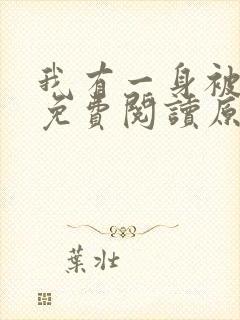 我有一身被
免費閱讀原
葉壯